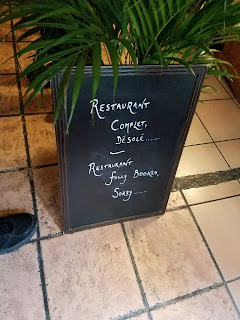 Restaurant
Complet,
Désolé......
Restaurant
fully Booked,
Sorry......